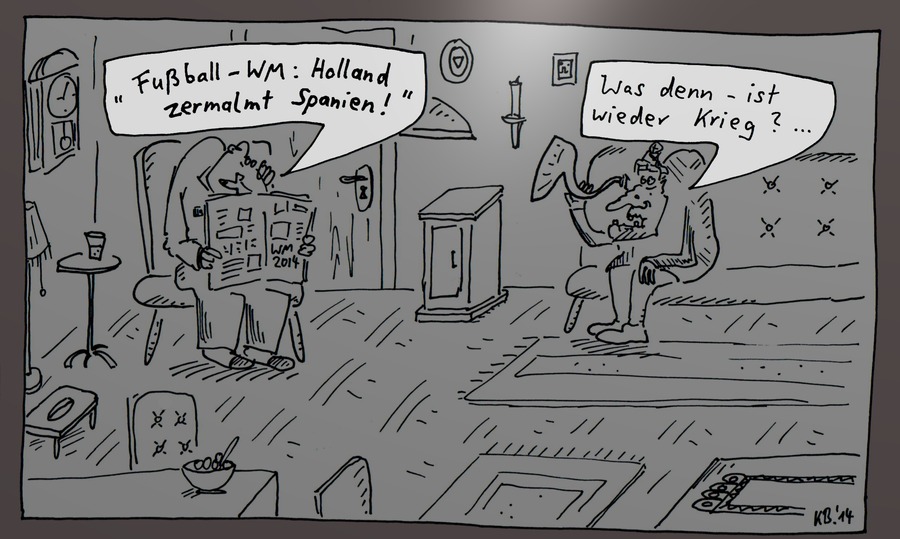 "Fußball-WM: Holland
zermalmt Spanien!"
Was denn - ist
wieder Krieg? ...
WM
2014
KB.'14